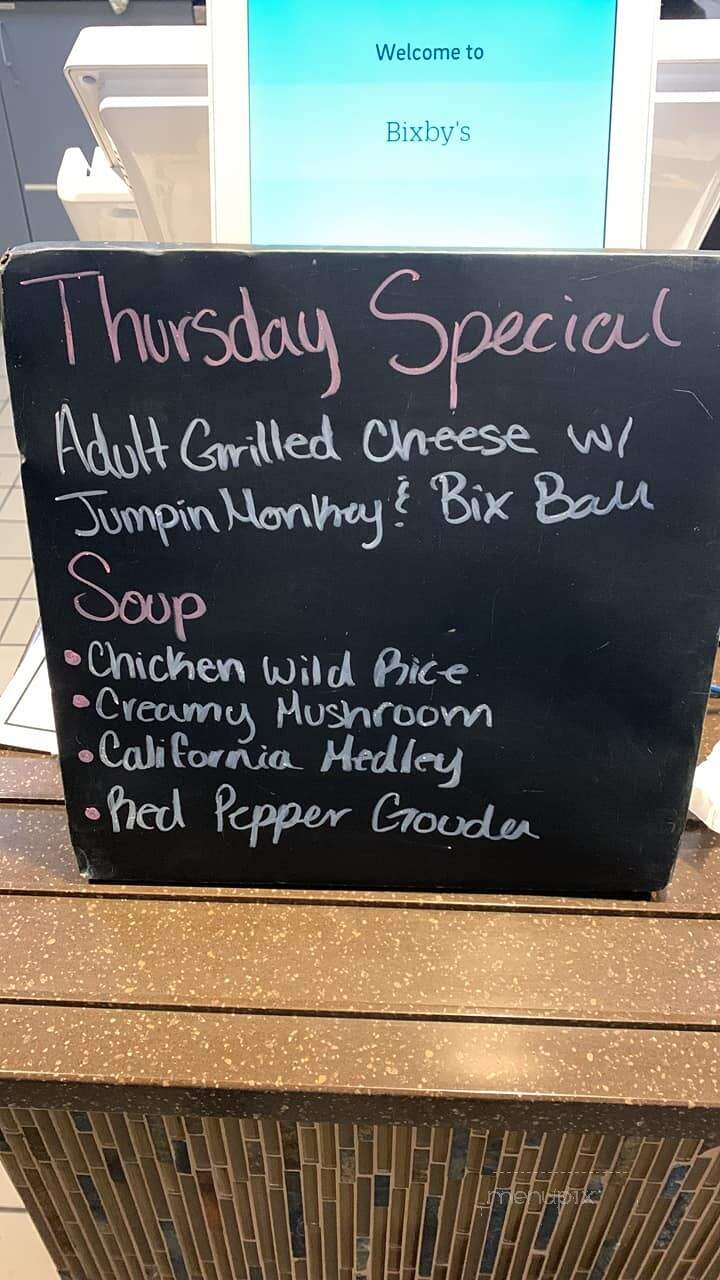 Welcome to
Bixby's
Thursday Special
Adult Grilled Cheese w/
Jumpin Monkey & Bix Ball
Soup
• Chicken Wild Rice
• Creamy Mushroom
• California Medley
• Red Pepper Gouda
menupix